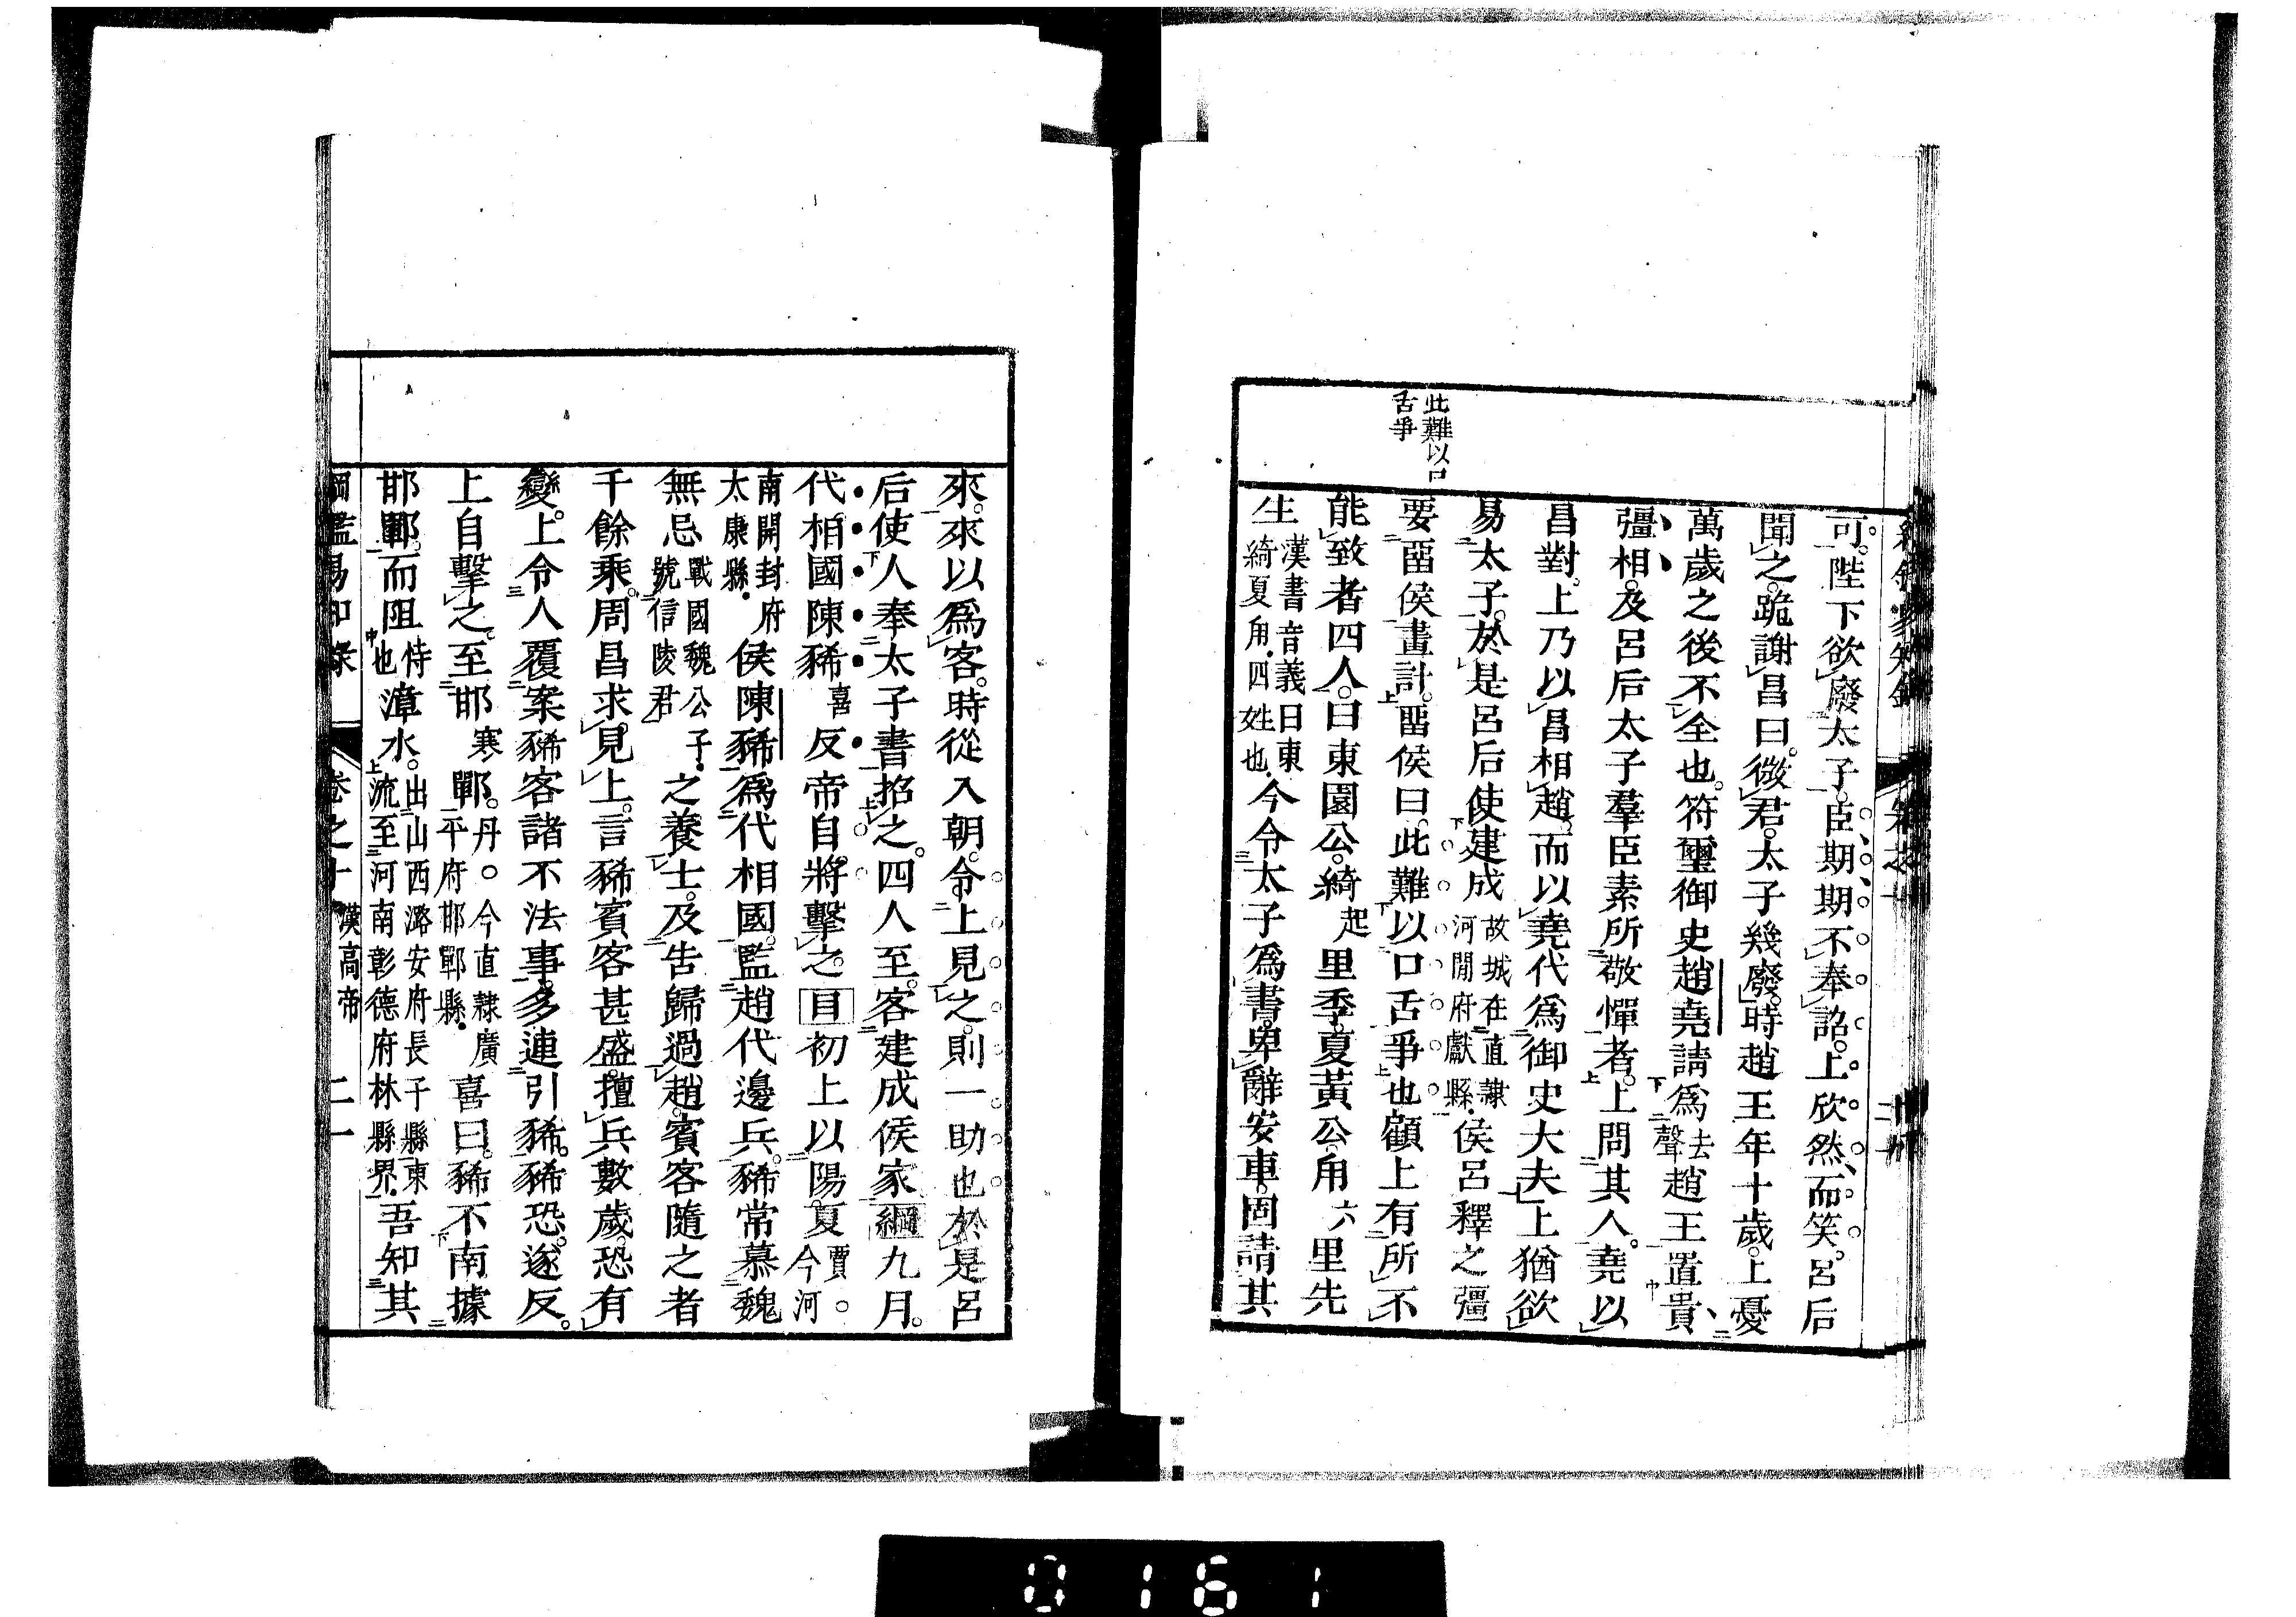 可。陛下欲廢太子。臣期期不奉詔。上欣然而笑。呂后
聞之。跪謝昌曰。微君。太子幾廢。時趙王年十歲。上憂
萬歲之後不全也。符璽御史趙堯請爲去聲趙王置貴
彊相。及呂后太子羣臣素所敬憚者。上問其人。堯以
昌對。上乃以昌相趙。而以堯代爲御史大夫。上猶欲
易太子。於是呂后使建成故城在直隷河閒府獻縣侯呂釋之彊
此難以口
舌爭
要畱侯畫計。畱侯曰。此難以口舌爭也。顧上有所不
能致者四人。曰東園公。綺起里季。夏黃公。甪六里先
生漢書音義曰東綺夏甪四姓也今令太子爲書。卑辭安車。固請其
來。來以爲客。時從入朝。令上見之。則一助也。於是呂
后使人奉太子書招之。四人至。客建成侯家綱九月。
代相國陳豨喜反帝自將擊之。目初上以陽夏賈。今河
南開封府太康縣侯陳豨爲代相國。監趙代邊兵。豨常慕魏
無忌戰國魏公子號信陵君之養士。及告歸過趙。賓客隨之者
千餘乘。周昌求見上。言豨賓客甚盛。擅兵數歲。恐有
變。上令人覆案豨客諸不法事。多連引豨。豨恐。遂反。
上自擊之。至邯寒鄲。丹。今直隷廣平府邯鄲縣喜曰。豨不南據
邯鄲。而阻恃也漳水。出山西潞安府長子縣東流至河南彰德府林縣界吾知其
綱鑑易知錄 卷之十 漢高帝 二一
0161